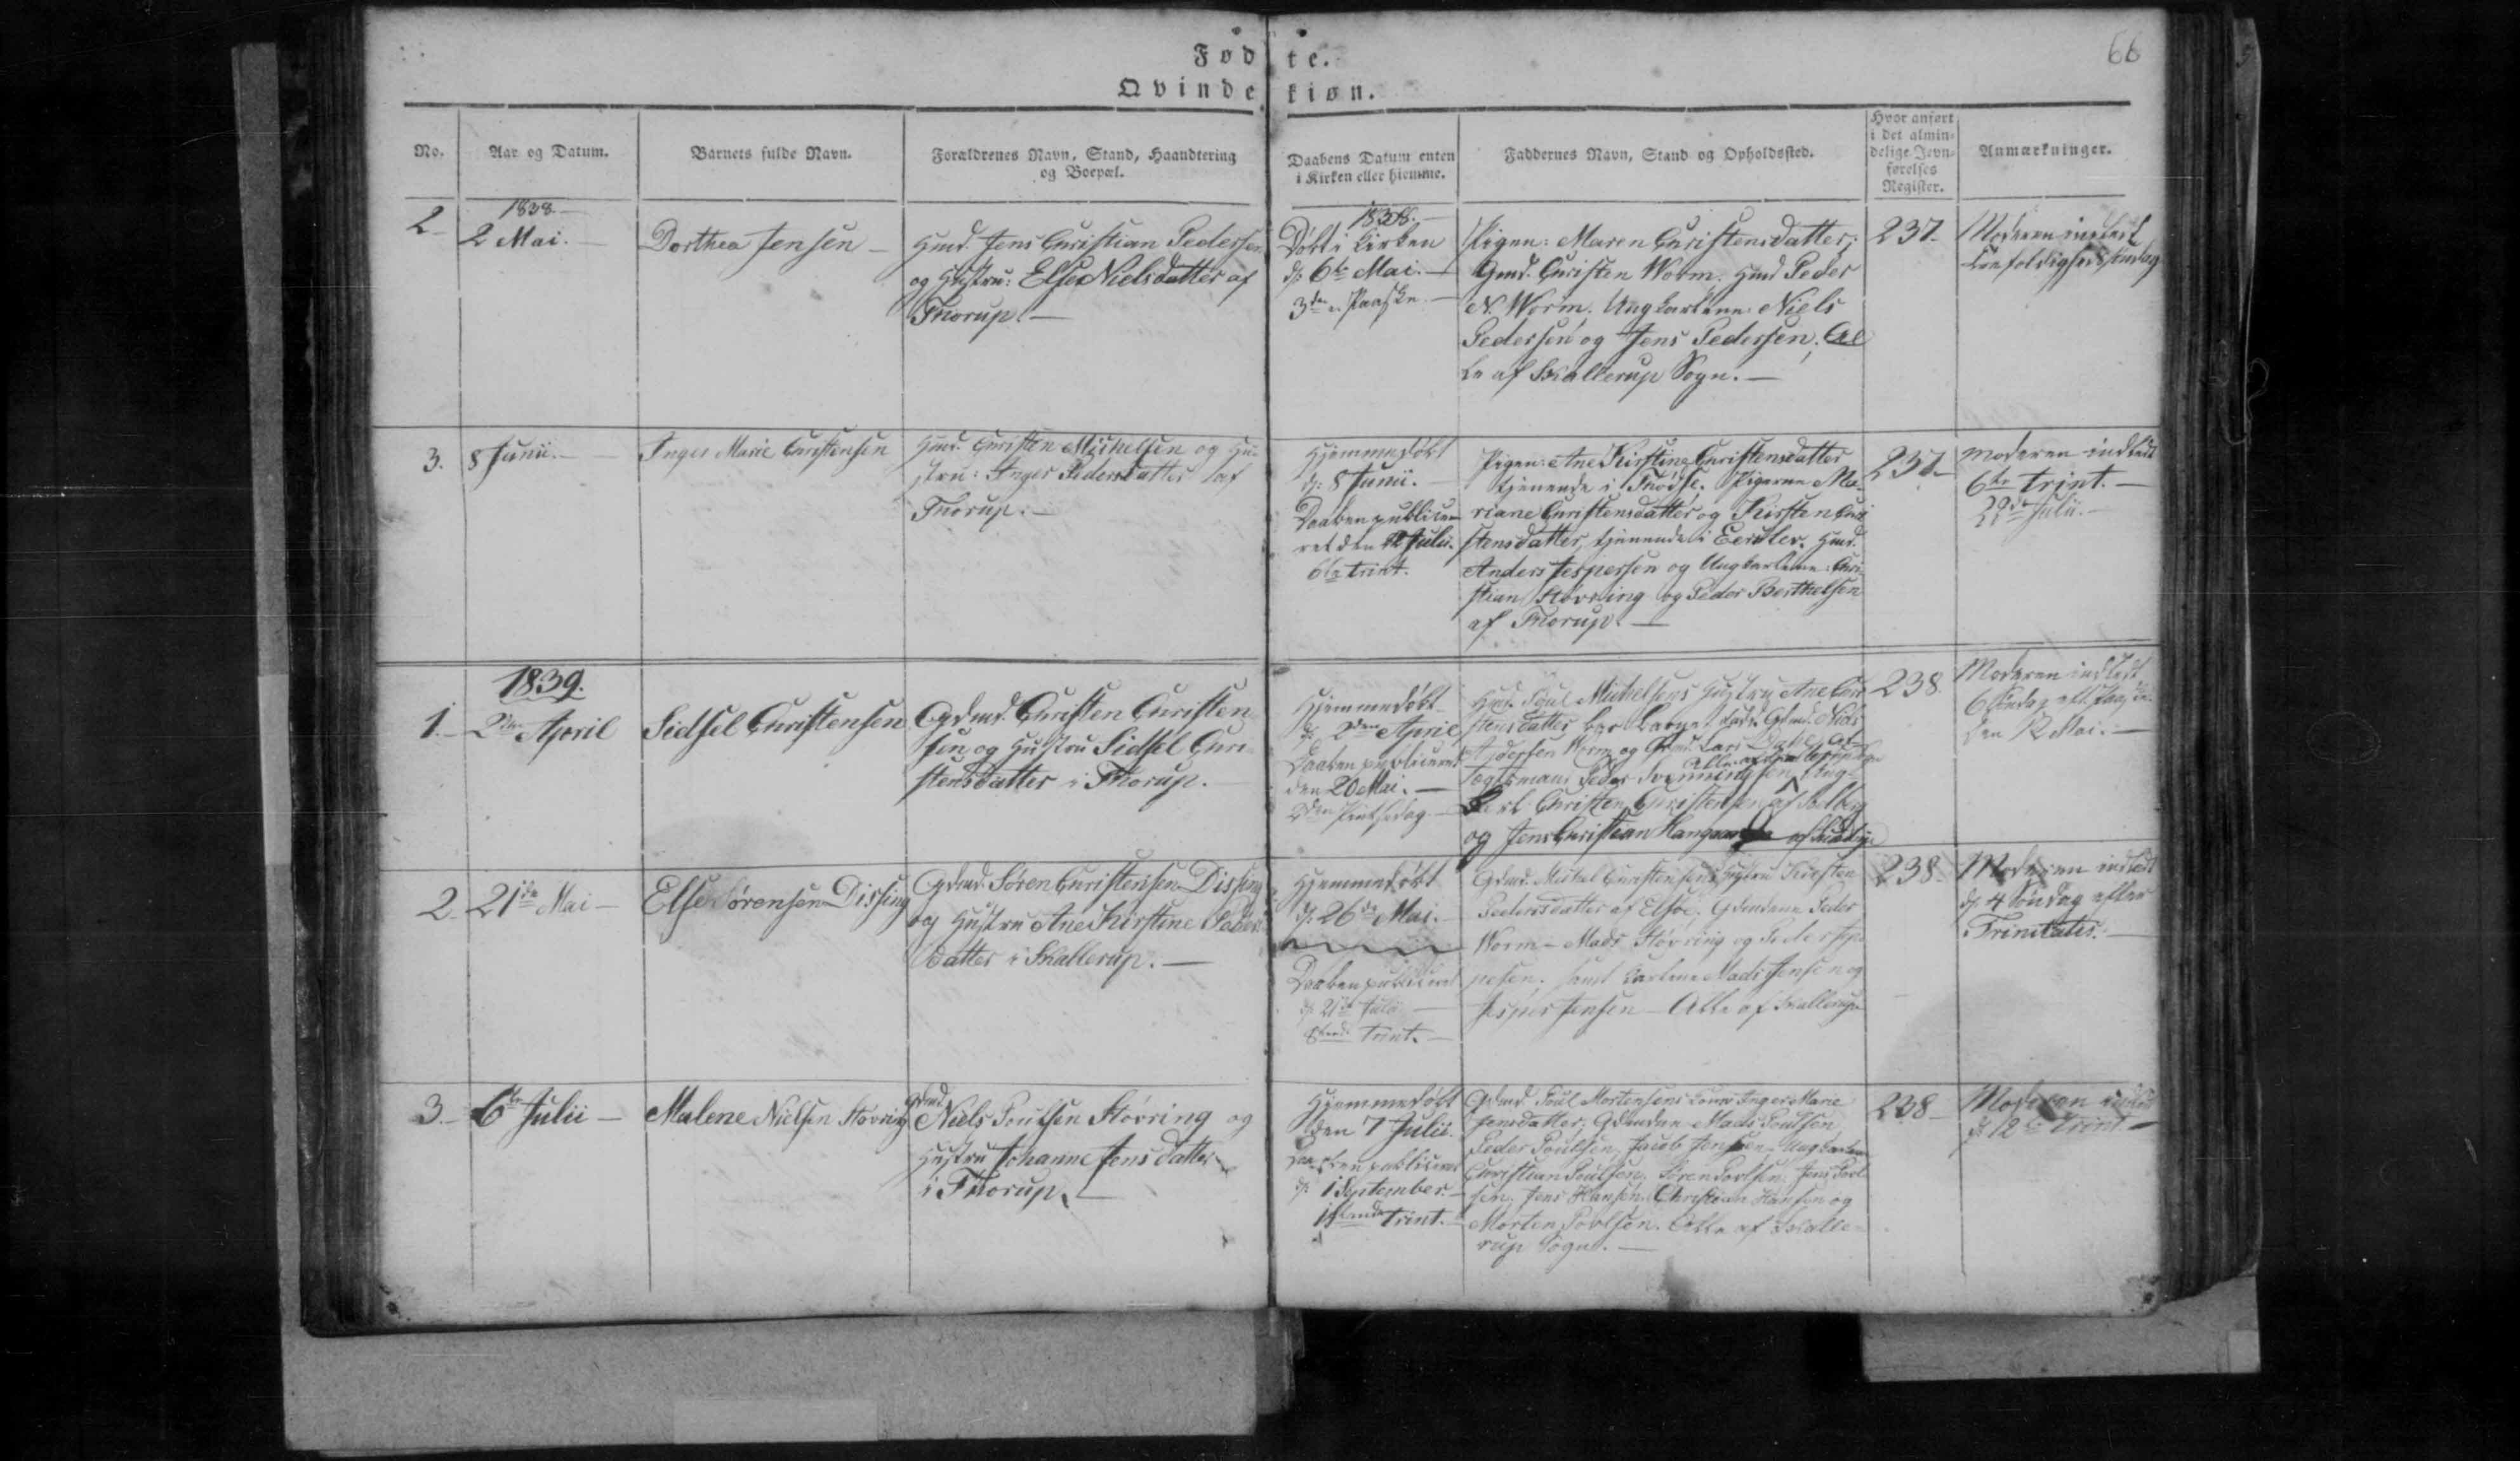 Fødte.
66
Qvindekiøn.
No.
Aar og Datum.
Barnets fulde Navn.
Forældrenes Navn, Stand, Haandtering
og Boepæl.
Daabens Datum enten
i Kirken eller hjemme.
Faddernes Navn, Stand og Opholdssted.
Hvor anført
i det almin-
delige Jevn-
førelses
Register.
Anmærkninger.
2
1838.
2 Mai.
Dorthea Jensen
Huusmd. Jens Christian Pedersen
og Hustru: Else Nielsdatter af
Thorup.
1838.
Døbt i Kirken
d: 6te Mai.
3die Paaske.
Pigen: Maren Christensdatter;
Gmd. Christen Worm, Hmd Peder
N. Worm. Ungkarlene: Niels
Pedersen og Jens Pedersen. Al
le af Skallerup Sogn.
237.
Moderen
3.
8 Junii.
Inger Marie Christensen
Hmd. Christen Michelsen og Hu-
stru: Inger Pedersdatter af
Thorup.
Hjemmedøbt
d: 8 Junii.
Daaben publice-
ret den Julii.
6te Trint.
Pigen: Ane Kirstine Christensdatter
tjenende i Pigerne Ma-
riane Christensdatter og Kirsten Chri
stensdatter, tjenende i Hmd.
Anders Jespersen og Ungkarlene: Chri-
stian Støvring og Peder Berthelsen
af Thorup.
237.
Moderen indledt
6te Trint.
Julii.
1839.
1.
2den April
Sidsel Christensen
Gdmd. Christen Christen
sen og Hustru Sidsel Chri
stensdatter i Thorup.
Hjemmedøbt
d: 2den April
Daaben publiceret
den 20 Mai.
2den Pintsedag
Hmd. Poul Michelsens Hustru Ane Chri
stensdatter bar Barnet. Fadd. Gdmd. Niels
Worm og Gmd. Lars Af-
tægtsmand Peder Svenningsen Ung-
karl Christen Christensen af
og Jens Christian
238
Moderen indledt
6 Søndag eft. Paaske
den 12 Mai.
2.
21de Mai
Else Sørensen Dissing
Gdmd. Søren Christensen Dissing
og Hustru Ane Kirstine Peders
datter i Skallerup.
Hjemmedøbt
d: 26de Mai.
Daaben publiceret
d: 21de Julii
8ende Trint.
Gdmd. Michel Christensens Hustru Kirsten
Pedersdatter af Gdmdene Peder
Worm – Mads Støvring og Peder Jep
pesen. samt Karlene Mads Jensen og
Jesper Jensen – Alle af Skallerup
238
Moderen indledt
d: 4 Søndag efter
Trinitatis.
3.
6te Julii
Malene Nielsen Støvring
Gdmd
Niels Poulsen Støvring og
Hustru Johanne Jensdatter
i Thorup.
Hjemmedøbt
den 7 Julii.
Daaben publiceret
d: 1 September.
Trint.
Gdmd Poul Mortensens Kone Inger Marie
Jensdatter; Gdmdene Mads Poulsen,
Peder Poulsen, Jacob Jensen – Ungkarlene
Christian Poulsen, Søren Poulsen, Jens Poul
sen. Jens Hansen. Christian Hansen og
Morten Povlsen. Alle af Skalle-
rup Sogn.
238
Moderen indledt
d: 12te Trint